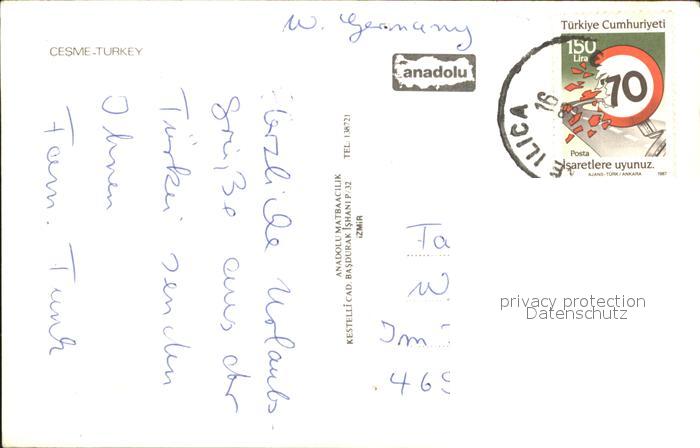 W. Germany
CESME-TURKEY
anadolu
Türkiye Cumhuriyeti
150
Lira
70
Posta
İşaretlere uyunuz.
AJANS-TÜRK / ANKARA 1987
ILICA
16
Herzliche Urlaubs-
grüße aus der
Türkei senden
Ihnen
Fam.
ANADOLU MATBAACILIK TEL: 138721
KESTELLİ CAD. BAŞDURAK İŞHANI P. 32
İZMİR
Fa
W.
Im
469
privacy protection
Datenschutz